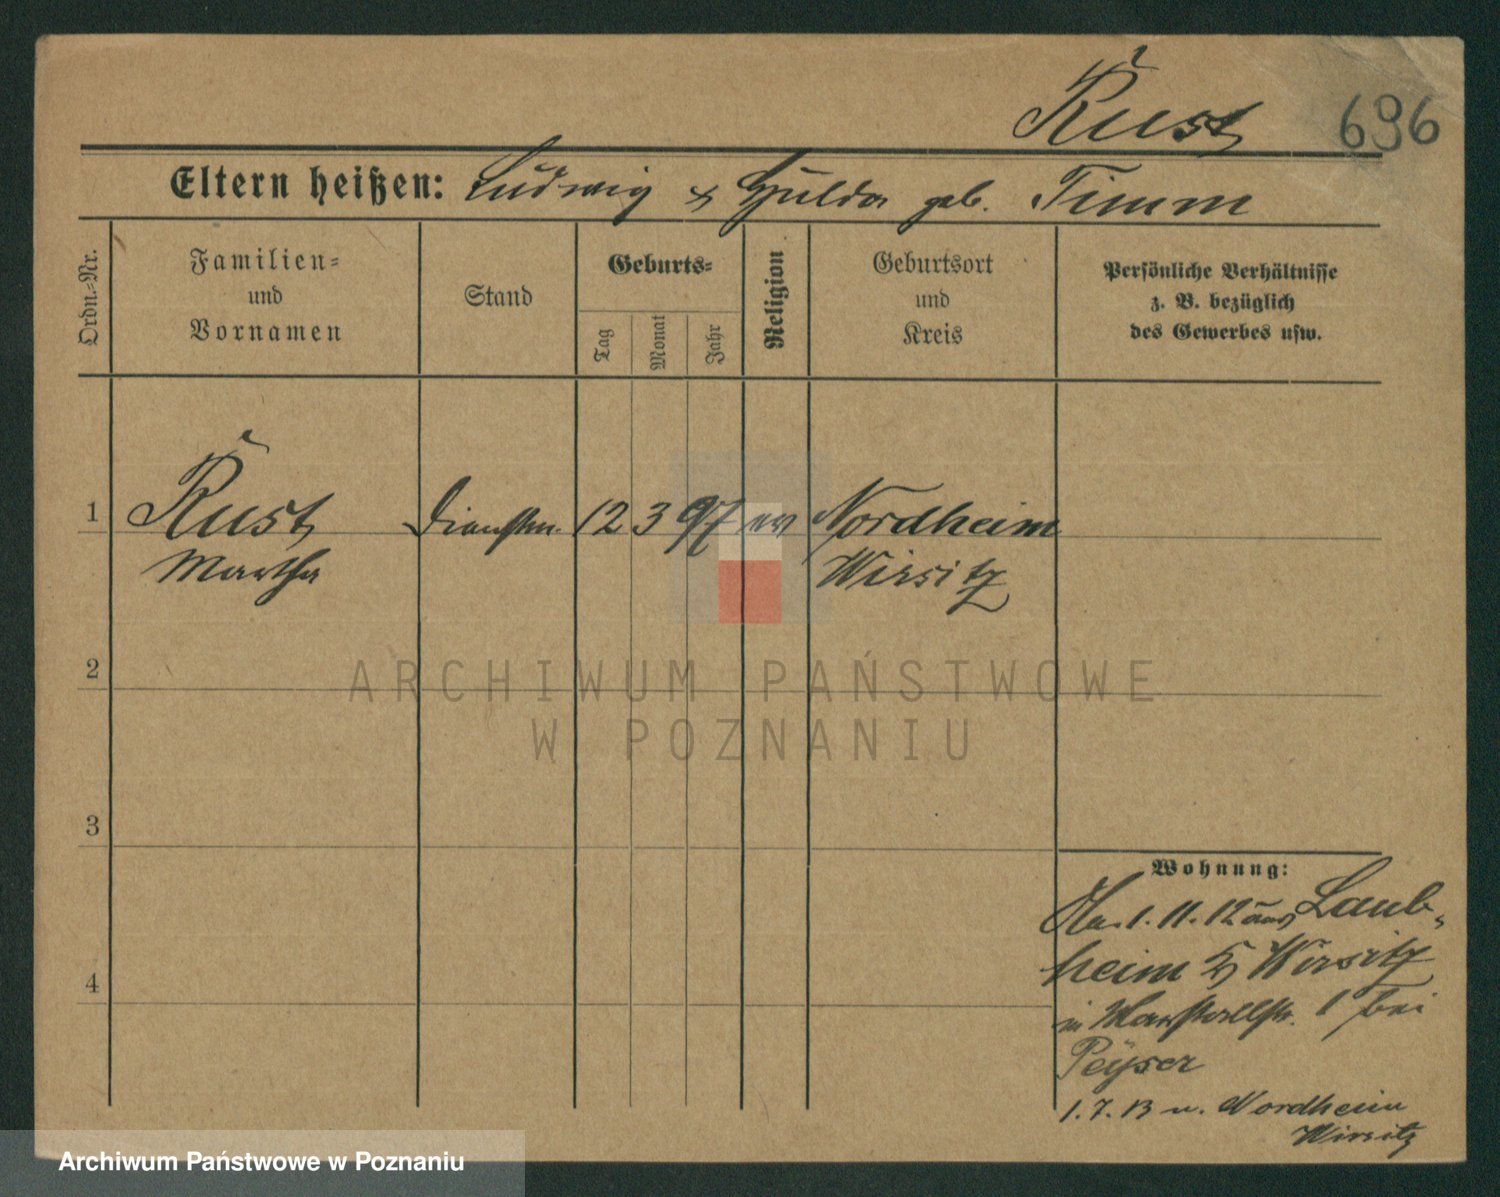 Rust 696
Eltern heißen: Ludwig & Hulda geb. Timm
Ordn.-Nr.
Familien-
und
Vornamen
Stand
Geburts-
Tag
Monat
Jahr
Religion
Geburtsort
und
Kreis
Persönliche Verhältnisse
z. B. bezüglich
des Gewerbes usw.
1 Rust Dienstm. 12 3 97 ev Nordheim
Martha Wirsitz
2
3
4
Wohnung:
1.11.12 aus Laub-
heim Wirsitz
in Marstallstr. 1 bei
Peyser
1.7.13 n. Nordheim
Wirsitz
ARCHIWUM PAŃSTWOWE
W POZNANIU
Archiwum Państwowe w Poznaniu